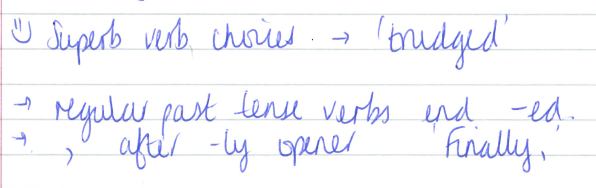 Superb verb choices. → 'trudged'
→ regular past tense verbs end -ed.
→ , after -ly opener 'Finally,'